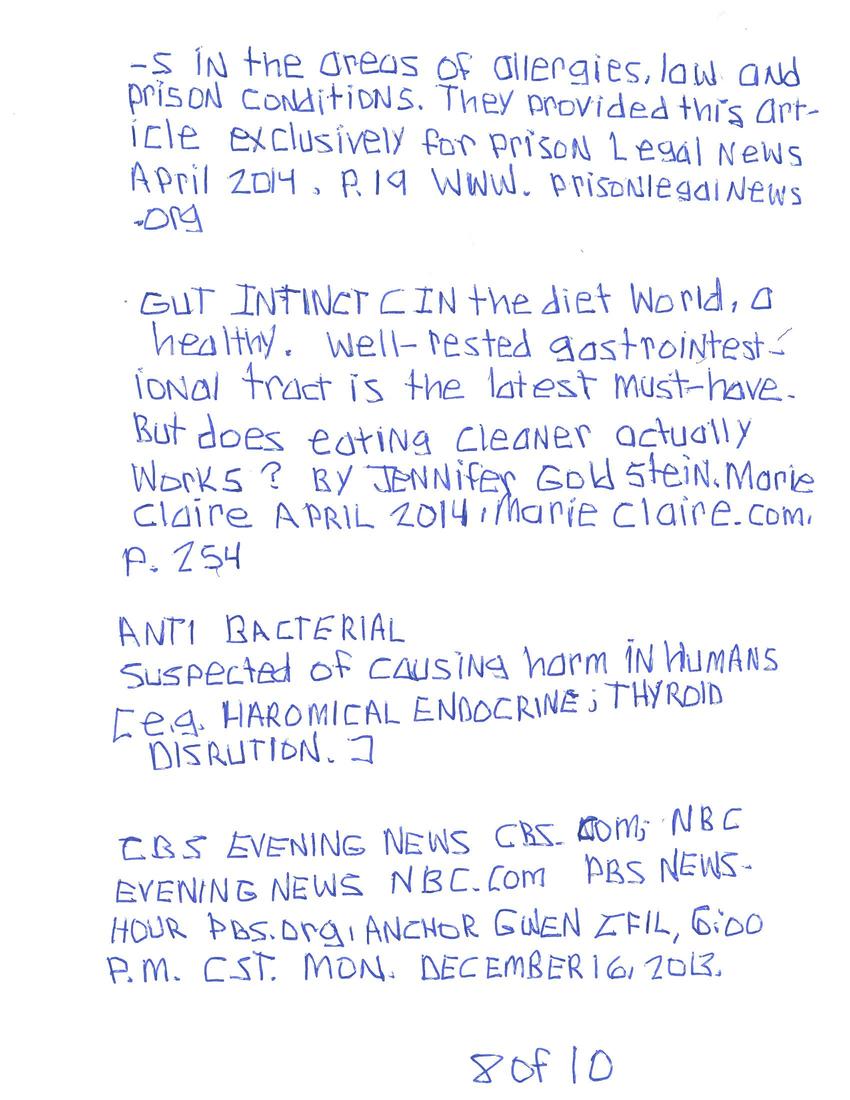 -s in the areas of allergies, law and
prison conditions. They provided this art-
icle exclusively for prison Legal News
April 2014, P.19 WWW. prisonlegalNews
.org
GUT INTINCT [IN the diet World, a
healthy. Well-rested gastrointest-
ional tract is the latest must-have.
But does eating cleaner actually
Works? BY JENNifer Goldstein. Marie
Claire APRIL 2014, Marie Claire.com,
P. 254
ANTI BACTERIAL
Suspected of causing harm in HUMANS
[e.g. HAROMICAL ENDOCRINE; THYROID
DISRUTION.]
CBS EVENING NEWS CBS. Com; NBC
EVENING NEWS NBC.Com PBS NEWS-
HOUR PBS.Org, ANCHOR GWEN IFIL, 6:00
P.M. CST. MON. DECEMBER 16, 2013.
8 of 10